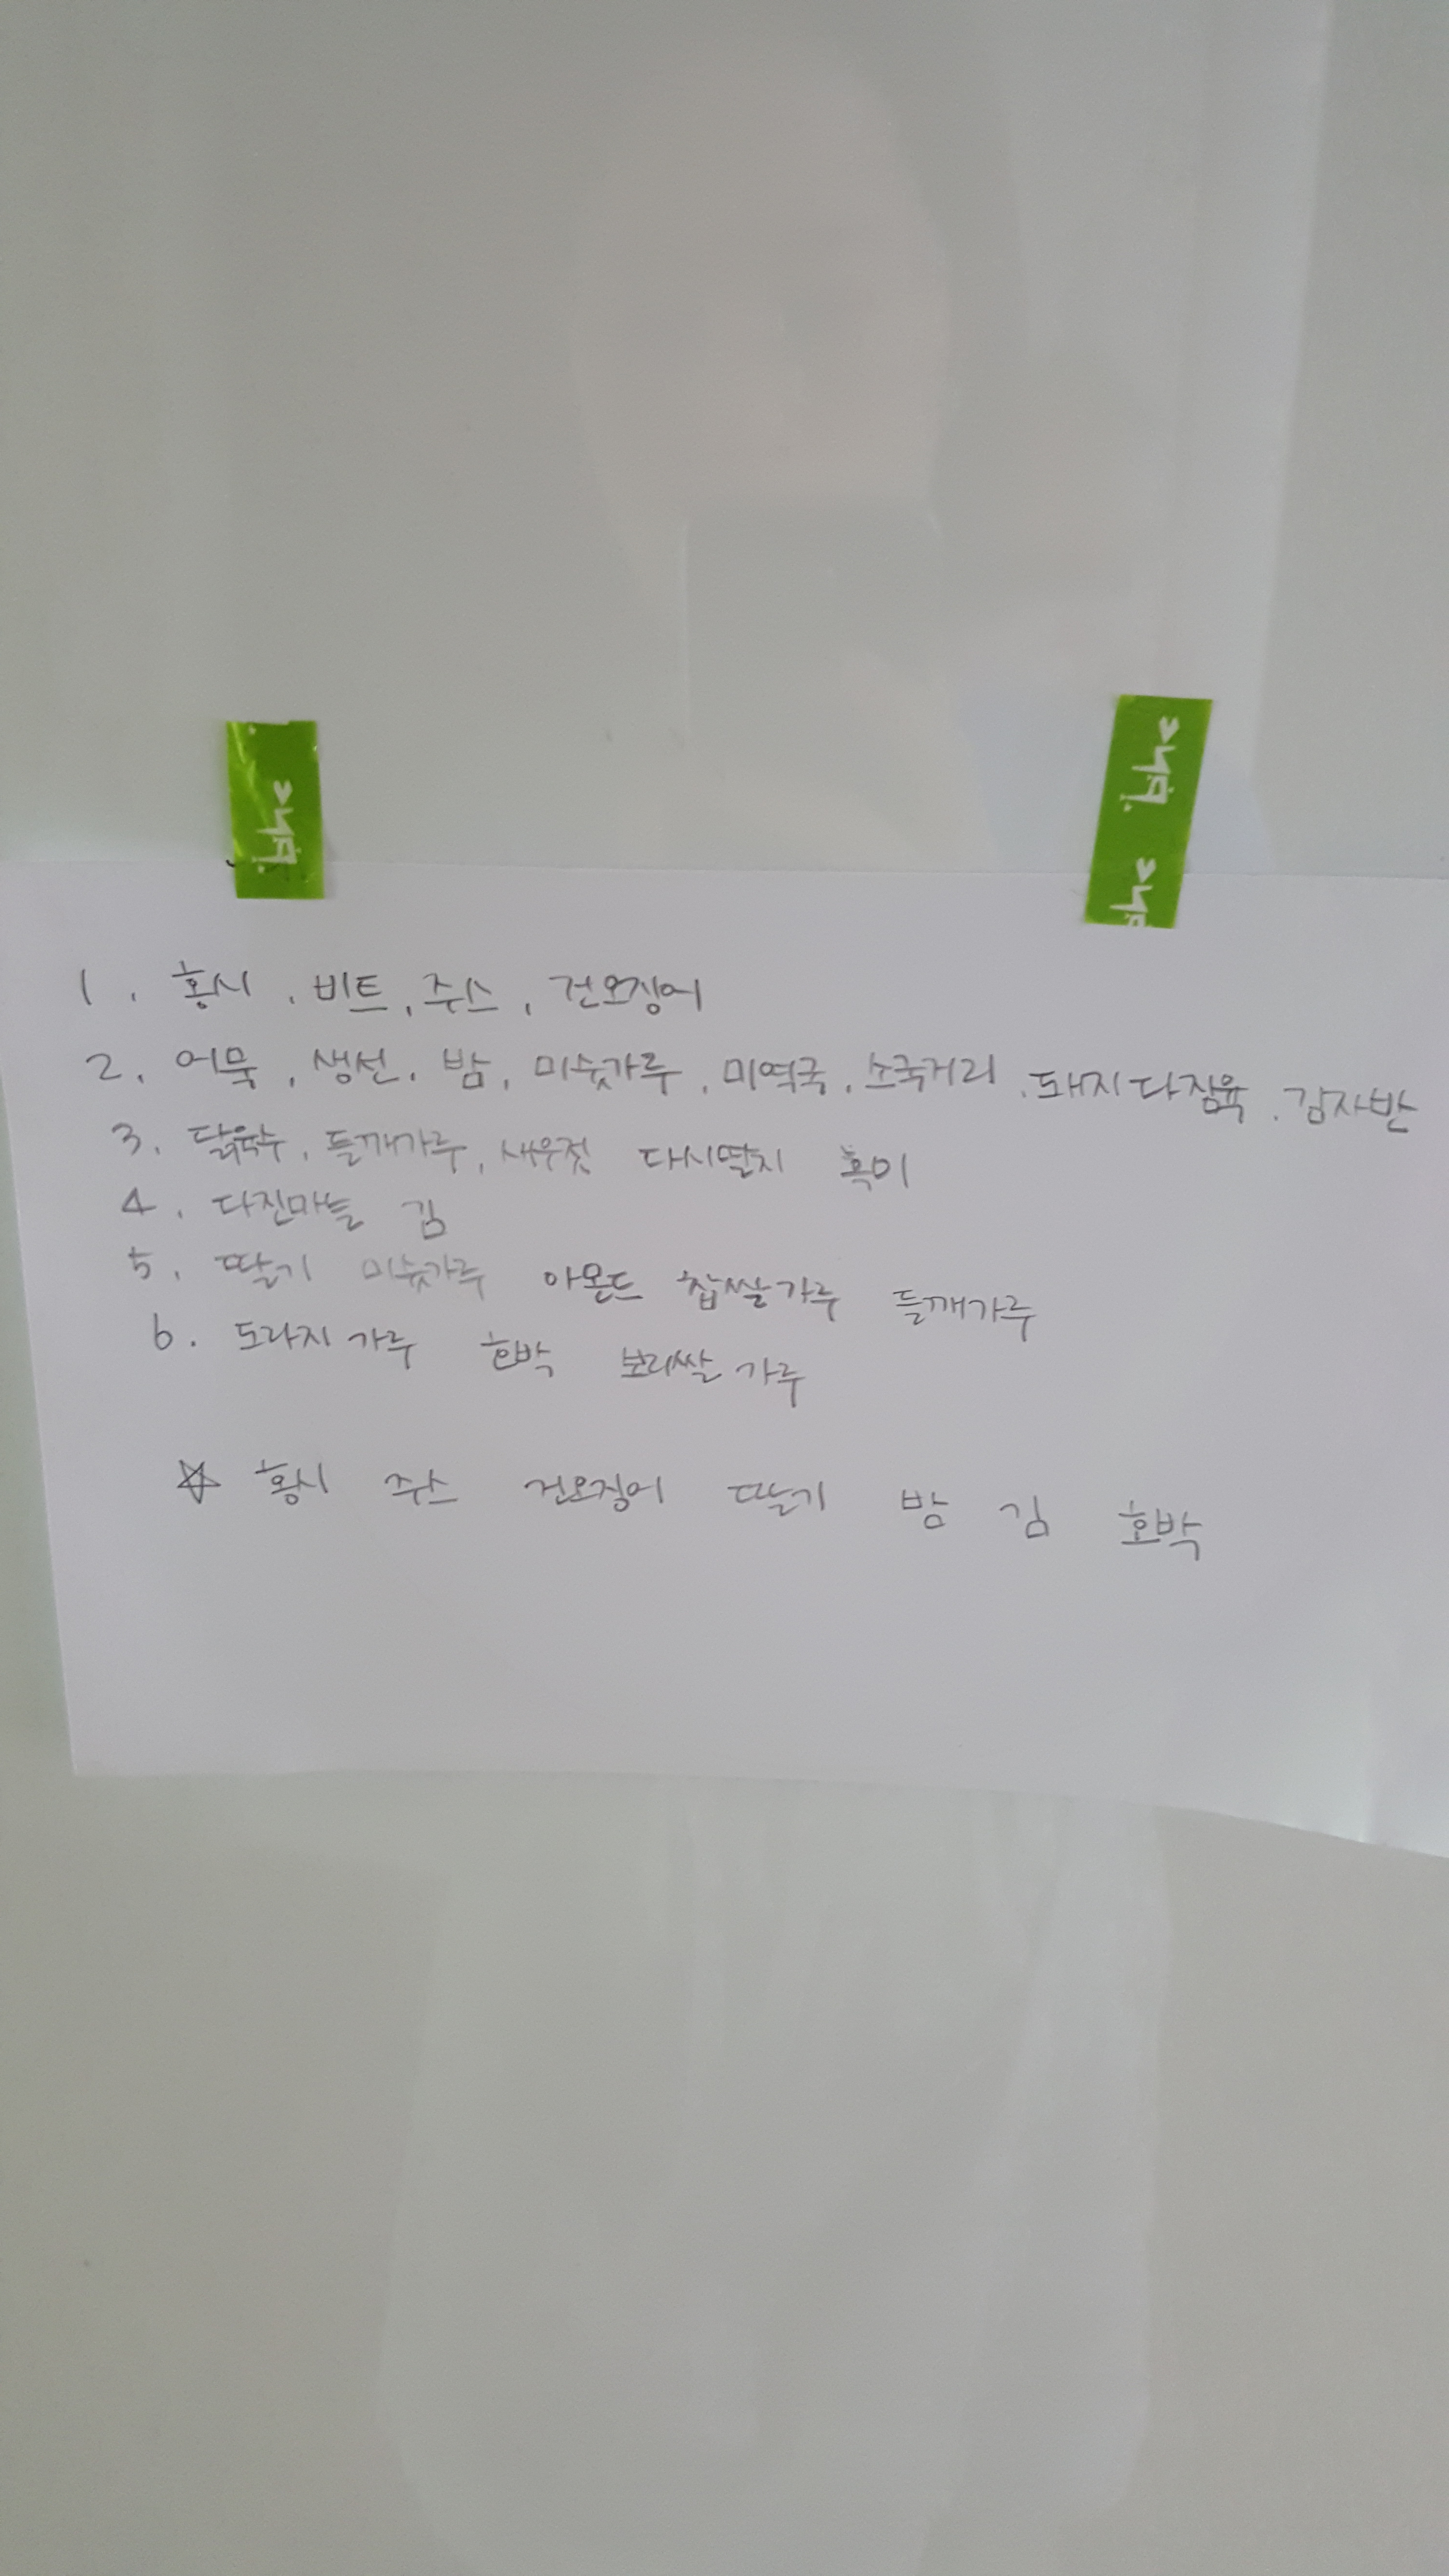 1. 홍시, 비트, 주스, 건오징어
2. 어묵, 생선, 밤, 미숫가루, 미역국, 소국거리, 돼지다짐육, 감자반
3. 닭육수, 들깨가루, 새우젓 다시멸치 흑미
4. 다진마늘 김
5. 딸기 미숫가루 아몬드 찹쌀가루 들깨가루
6. 도라지가루 호박 보리쌀가루
☆ 홍시 주스 건오징어 딸기 밤 김 호박